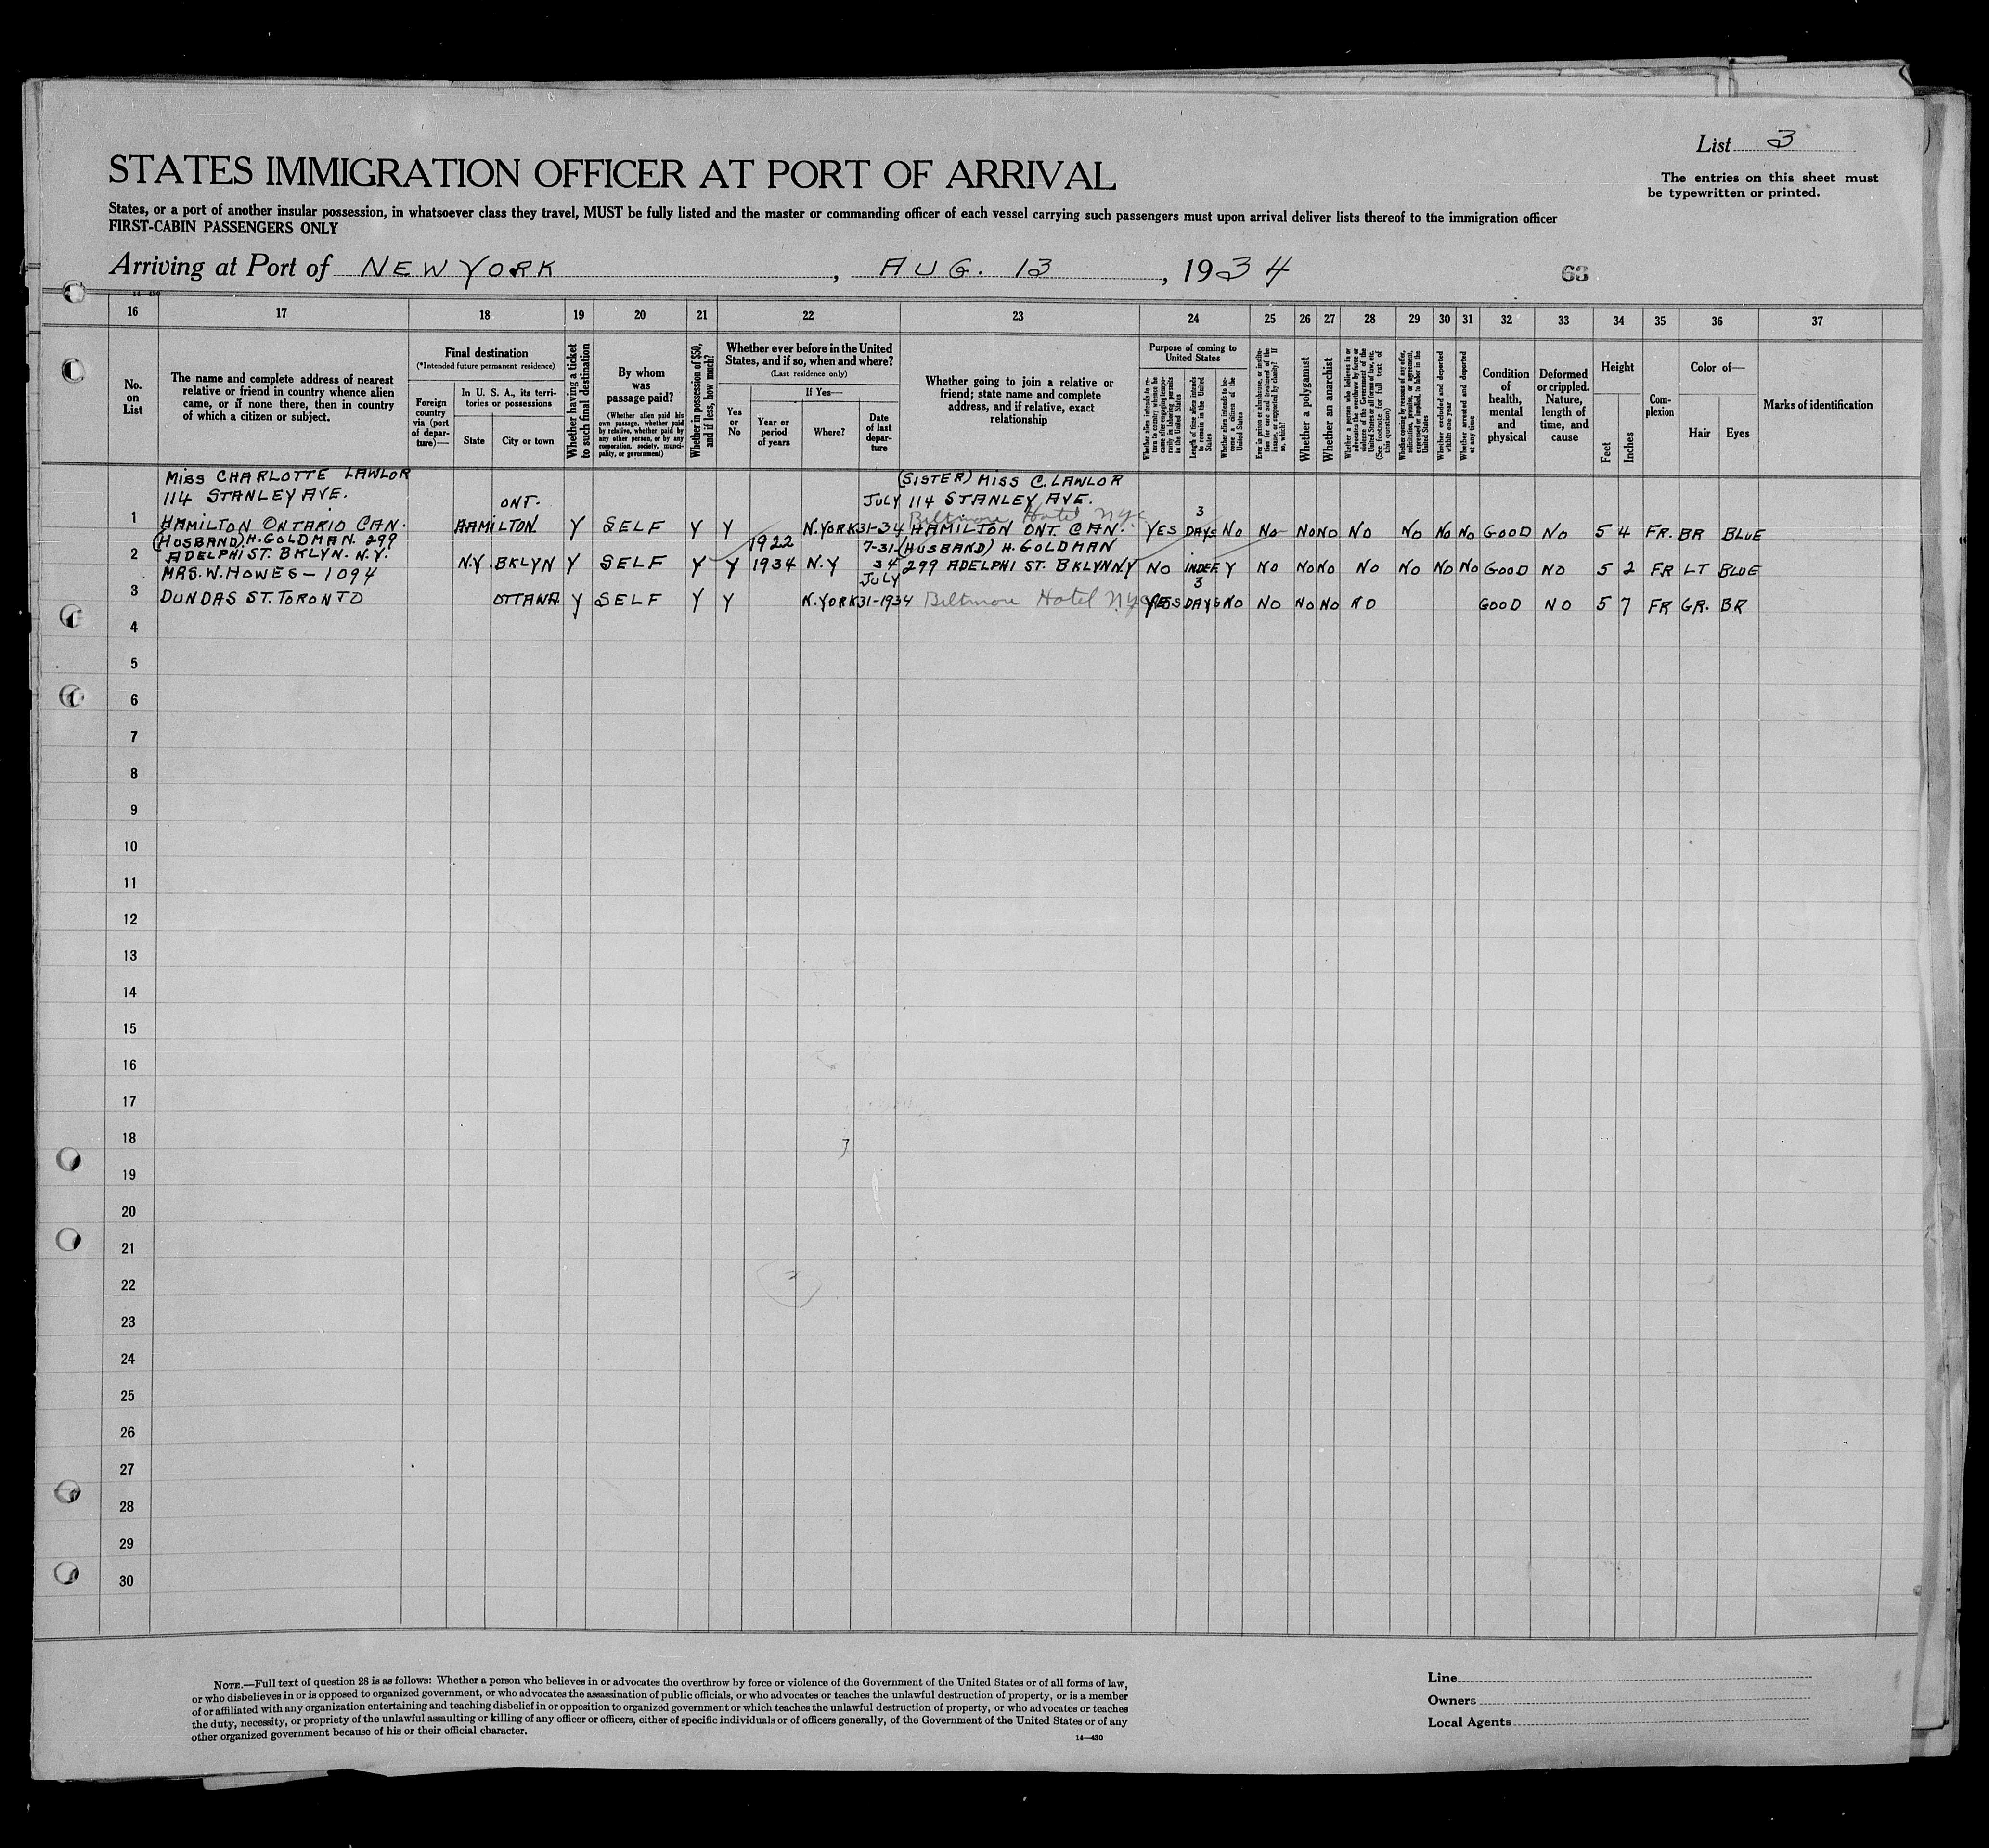 List 3
The entries on this sheet must
be typewritten or printed.
STATES IMMIGRATION OFFICER AT PORT OF ARRIVAL
States, or a port of another insular possession, in whatsoever class they travel, MUST be fully listed and the master or commanding officer of each vessel carrying such passengers must upon arrival deliver lists thereof to the immigration officer
FIRST-CABIN PASSENGERS ONLY
Arriving at Port of NEW YORK, AUG. 13, 1934
63
14—430
16 17 18 19 20 21 22 23 24 25 26 27 28 29 30 31 32 33 34 35 36 37
No.
on
List
The name and complete address of nearest
relative or friend in country whence alien
came, or if none there, then in country
of which a citizen or subject.
Final destination
(*Intended future permanent residence)
Foreign
country
via (port
of depar-
ture)—
In U. S. A., its terri-
tories or possessions
State
City or town
Whether having a ticket
to such final destination
By whom
was
passage paid?
(Whether alien paid his
own passage, whether paid
by relative, whether paid by
any other person, or by any
corporation, society, munici-
pality, or government)
Whether in possession of $50,
and if less, how much?
Whether ever before in the United
States, and if so, when and where?
(Last residence only)
Yes
or
No
If Yes—
Year or
period
of years
Where?
Date
of last
depar-
ture
Whether going to join a relative or
friend; state name and complete
address, and if relative, exact
relationship
Purpose of coming to
United States
Whether alien intends to re-
turn to country whence he
came after engaging tempo-
rarily in laboring pursuits
in the United States
Length of time alien intends
to remain in the United
States
Whether alien intends to be-
come a citizen of the
United States
Ever in prison or almshouse, or institu-
tion for care and treatment of the
insane, or supported by charity? If
so, which?
Whether a polygamist
Whether an anarchist
Whether a person who believes in or
advocates the overthrow by force or
violence of the Government of the
United States or all forms of law, etc.
(See footnote for full text of
this question)
Whether coming by reason of any offer,
solicitation, promise, or agreement,
expressed or implied, to labor in the
United States
Whether excluded and deported
within one year
Whether arrested and deported
at any time
Condition
of
health,
mental
and
physical
Deformed
or crippled.
Nature,
length of
time, and
cause
Height
Feet
Inches
Com-
plexion
Color of—
Hair
Eyes
Marks of identification
MISS CHARLOTTE LAWLOR (SISTER) MISS C. LAWLOR
114 STANLEY AVE. ONT. JULY 114 STANLEY AVE.
Biltmore Hotel NYC 3
1 HAMILTON ONTARIO CAN. HAMILTON Y SELF Y Y N.YORK 31-34 HAMILTON ONT. CAN. YES DAYS NO NO NO NO NO NO NO NO GOOD NO 5 4 FR. BR BLUE
(HUSBAND) H. GOLDMAN. 299 1922 7-31- (HUSBAND) H. GOLDMAN
2 ADELPHI ST. BKLYN. N.Y. N.Y. BKLYN Y SELF Y Y 1934 N.Y 34 299 ADELPHI ST. BKLYN N.Y NO INDEF Y NO NO NO NO NO NO NO GOOD NO 5 2 FR LT BLUE
MRS. W. HOWES - 1094 JULY 3
3 DUNDAS ST. TORONTO OTTAWA Y SELF Y Y N.YORK 31-1934 Biltmore Hotel NYC YES DAYS NO NO NO NO NO GOOD NO 5 7 FR GR. BR
4
5
6
7
8
9
10
11
12
13
14
15
16
17
18
19
20
21
22
23
24
25
26
27
28
29
30
NOTE.—Full text of question 28 is as follows: Whether a person who believes in or advocates the overthrow by force or violence of the Government of the United States or of all forms of law,
or who disbelieves in or is opposed to organized government, or who advocates the assassination of public officials, or who advocates or teaches the unlawful destruction of property, or is a member
of or affiliated with any organization entertaining and teaching disbelief in or opposition to organized government or which teaches the unlawful destruction of property, or who advocates or teaches
the duty, necessity, or propriety of the unlawful assaulting or killing of any officer or officers, either of specific individuals or of officers generally, of the Government of the United States or of any
other organized government because of his or their official character.
14—430
Line
Owners
Local Agents